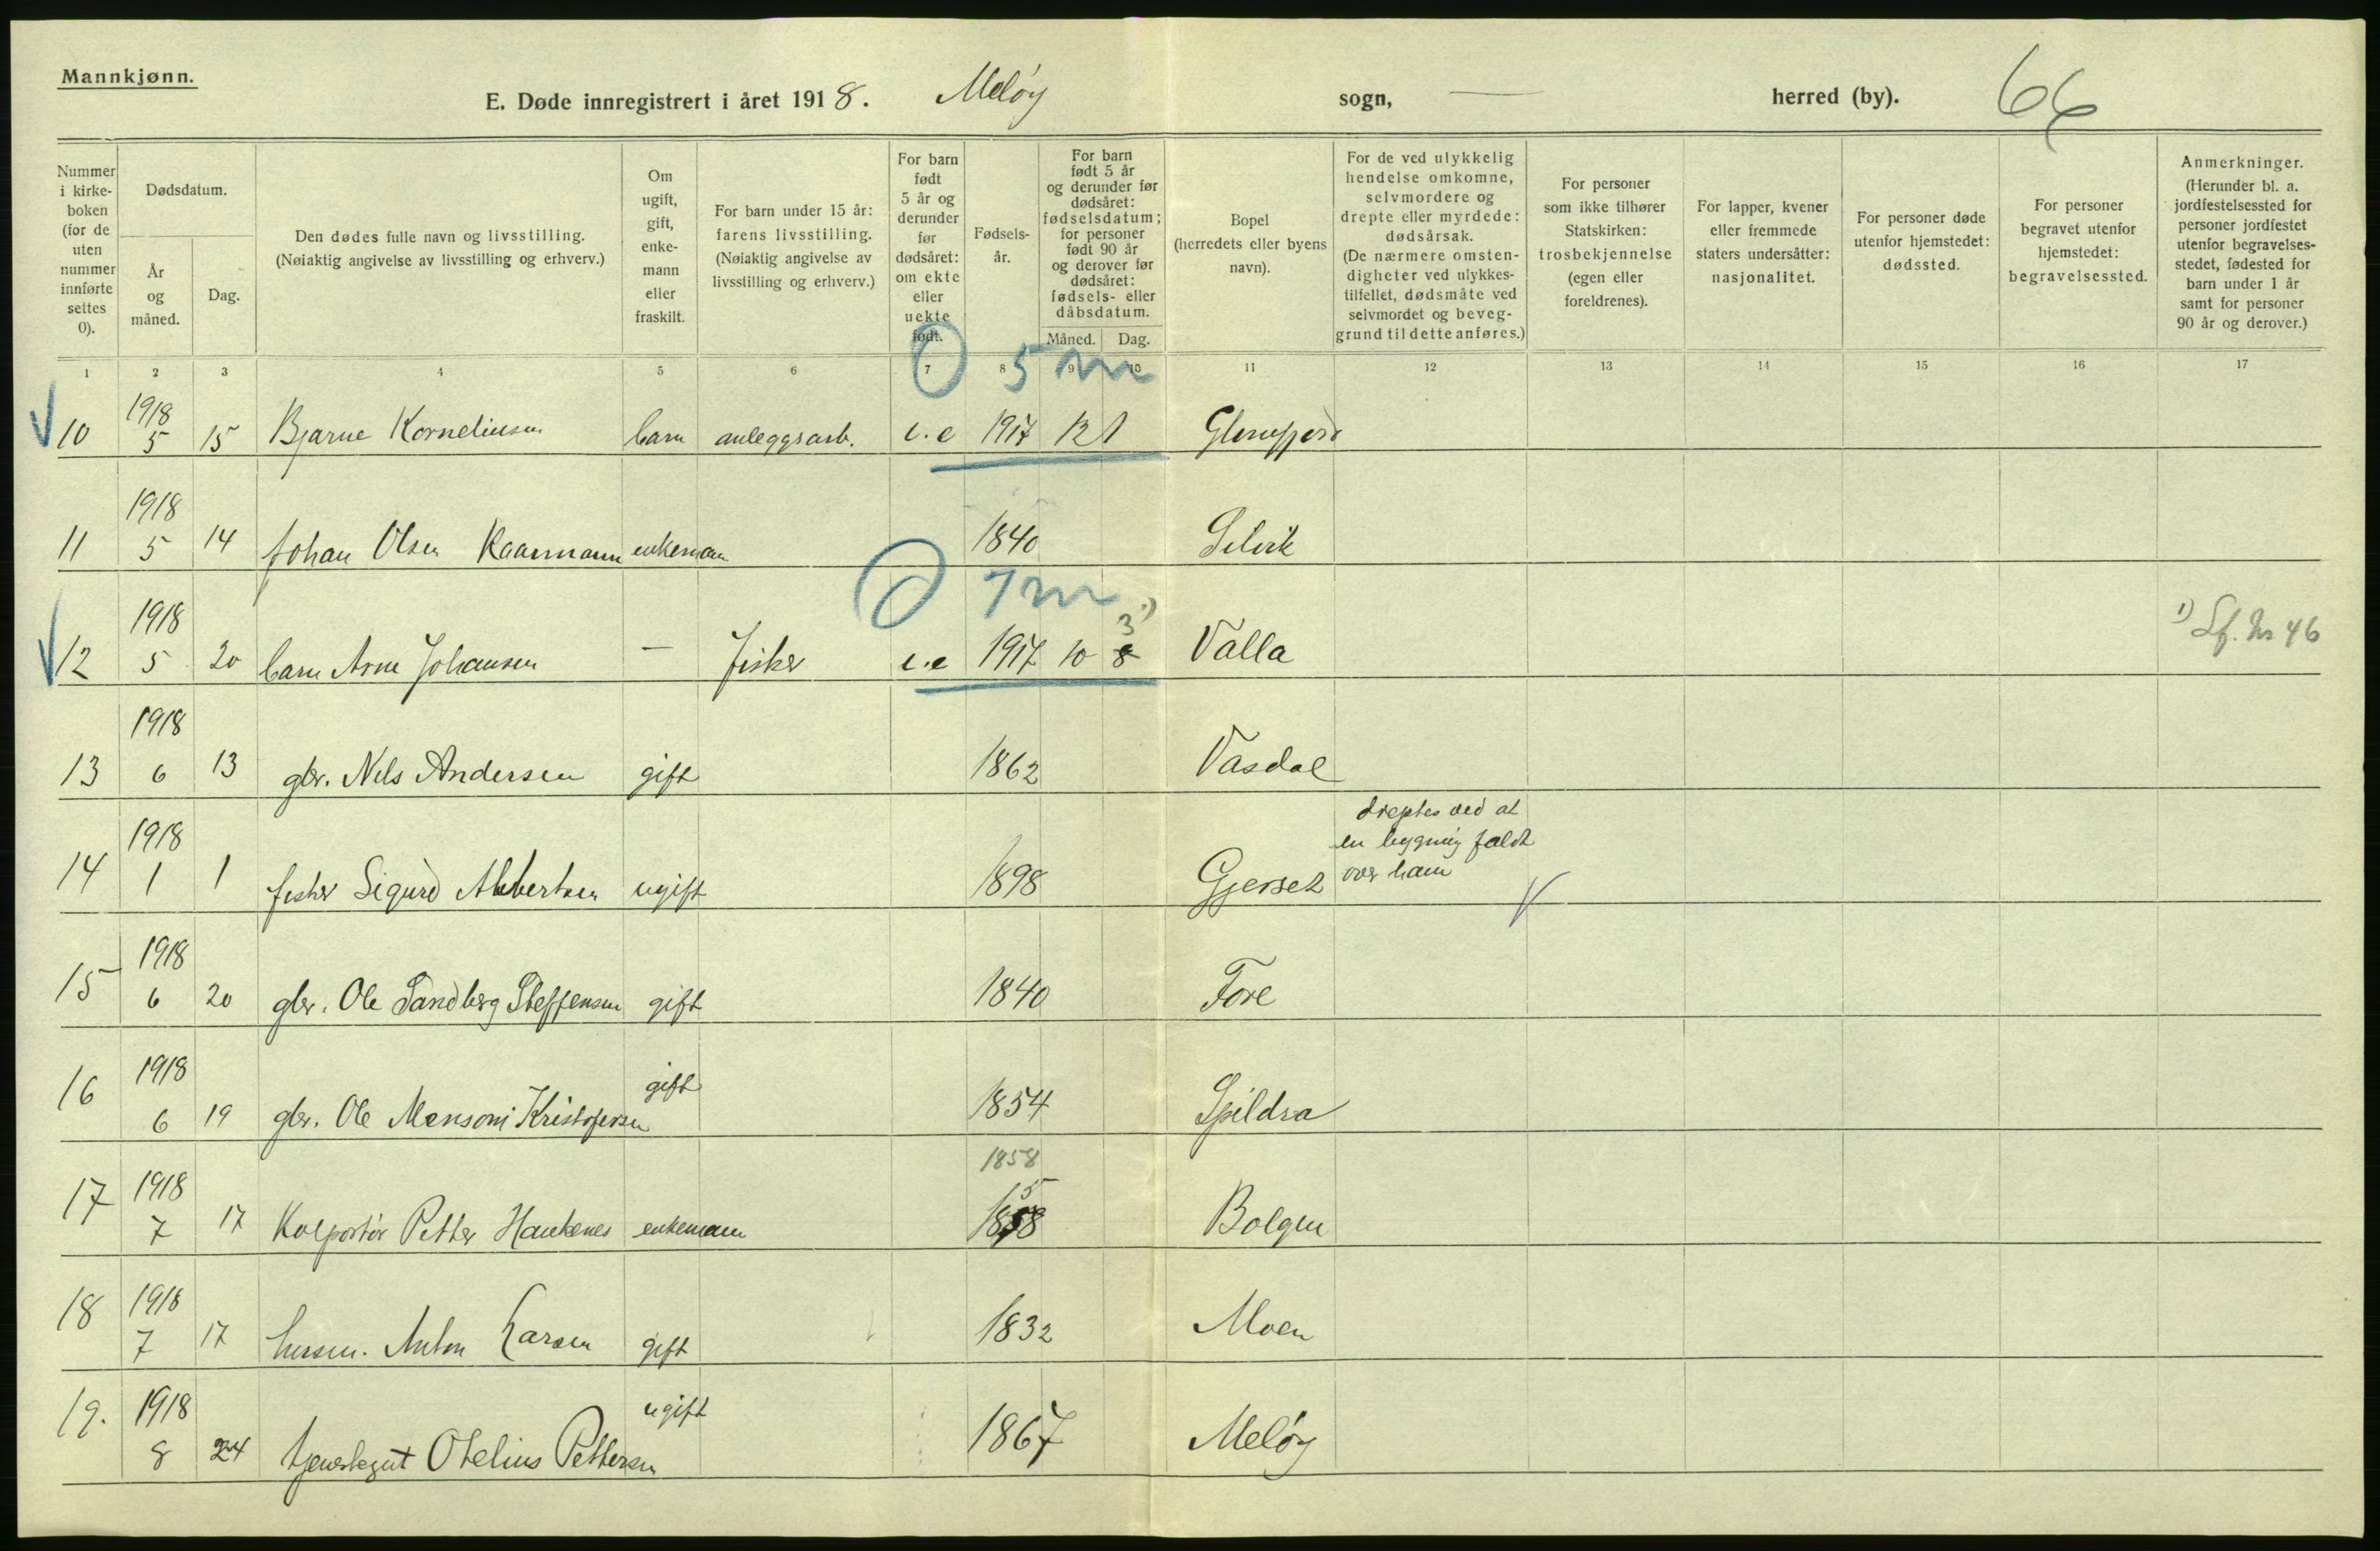 Mannkjønn.
E. Døde innregistrert i året 1918. Meløy sogn, — herred (by). 66
Nummer i kirke-boken (for de uten nummer innførte settes 0).
Dødsdatum.
År og måned.
Dag.
Den dødes fulle navn og livsstilling.
(Nøiaktig angivelse av livsstilling og erhverv.)
Om ugift, gift, enke-mann eller fraskilt.
For barn under 15 år: farens livsstilling.
(Nøiaktig angivelse av livsstilling og erhverv.)
For barn født 5 år og derunder før dødsåret: om ekte eller uekte født.
Fødsels-år.
For barn født 5 år og derunder før dødsåret: fødselsdatum; for personer født 90 år og derover før dødsåret: fødsels- eller dåbsdatum.
Måned. Dag.
Bopel (herredets eller byens navn).
For de ved ulykkelig hendelse omkomne, selvmordere og drepte eller myrdede: dødsårsak.
(De nærmere omsten-digheter ved ulykkes-tilfellet, dødsmåte ved selvmordet og beveg-grund til dette anføres.)
For personer som ikke tilhører Statskirken: trosbekjennelse (egen eller foreldrenes).
For lapper, kvener eller fremmede staters undersåtter: nasjonalitet.
For personer døde utenfor hjemstedet: dødssted.
For personer begravet utenfor hjemstedet: begravelsessted.
Anmerkninger.
(Herunder bl. a. jordfestelsessted for personer jordfestet utenfor begravelses-stedet, fødested for barn under 1 år samt for personer 90 år og derover.)
1 2 3 4 5 6 7 8 9 10 11 12 13 14 15 16 17
0 5 m
10 1918 5 15 Bjarne Korneliusen barn anleggsarb. e.e 1917 12 1 Glomfjord
11 1918 5 14 Johan Olsen Kaarmann enkeman 1840 Selvik
0 7 m
12 1918 5 20 barn Arne Johansen — fisker e.e 1917 10 8 3 1) Valla 1) Lf. No 46
13 1918 6 13 gbr. Nils Andersen gift 1862 Vasdal
14 1918 1 1 fisker Sigurd Albertsen ugift 1898 Gjerset dreptes ved at
en bygning faldt
over ham
15 1918 6 20 gbr. Ole Sandberg Steffensen gift 1840 Fore
16 1918 6 19 gbr. Ole Monsoni Kristofersen gift 1854 Spildra
1858
17 1918 7 17 Kolportør Petter Haukenes enkemann 1858 5 Bolgen
18 1918 7 17 husm. Anton Larsen gift 1832 Moen
19. 1918 8 24 tjenestegut Otelius Pettersen ugift 1867 Meløy